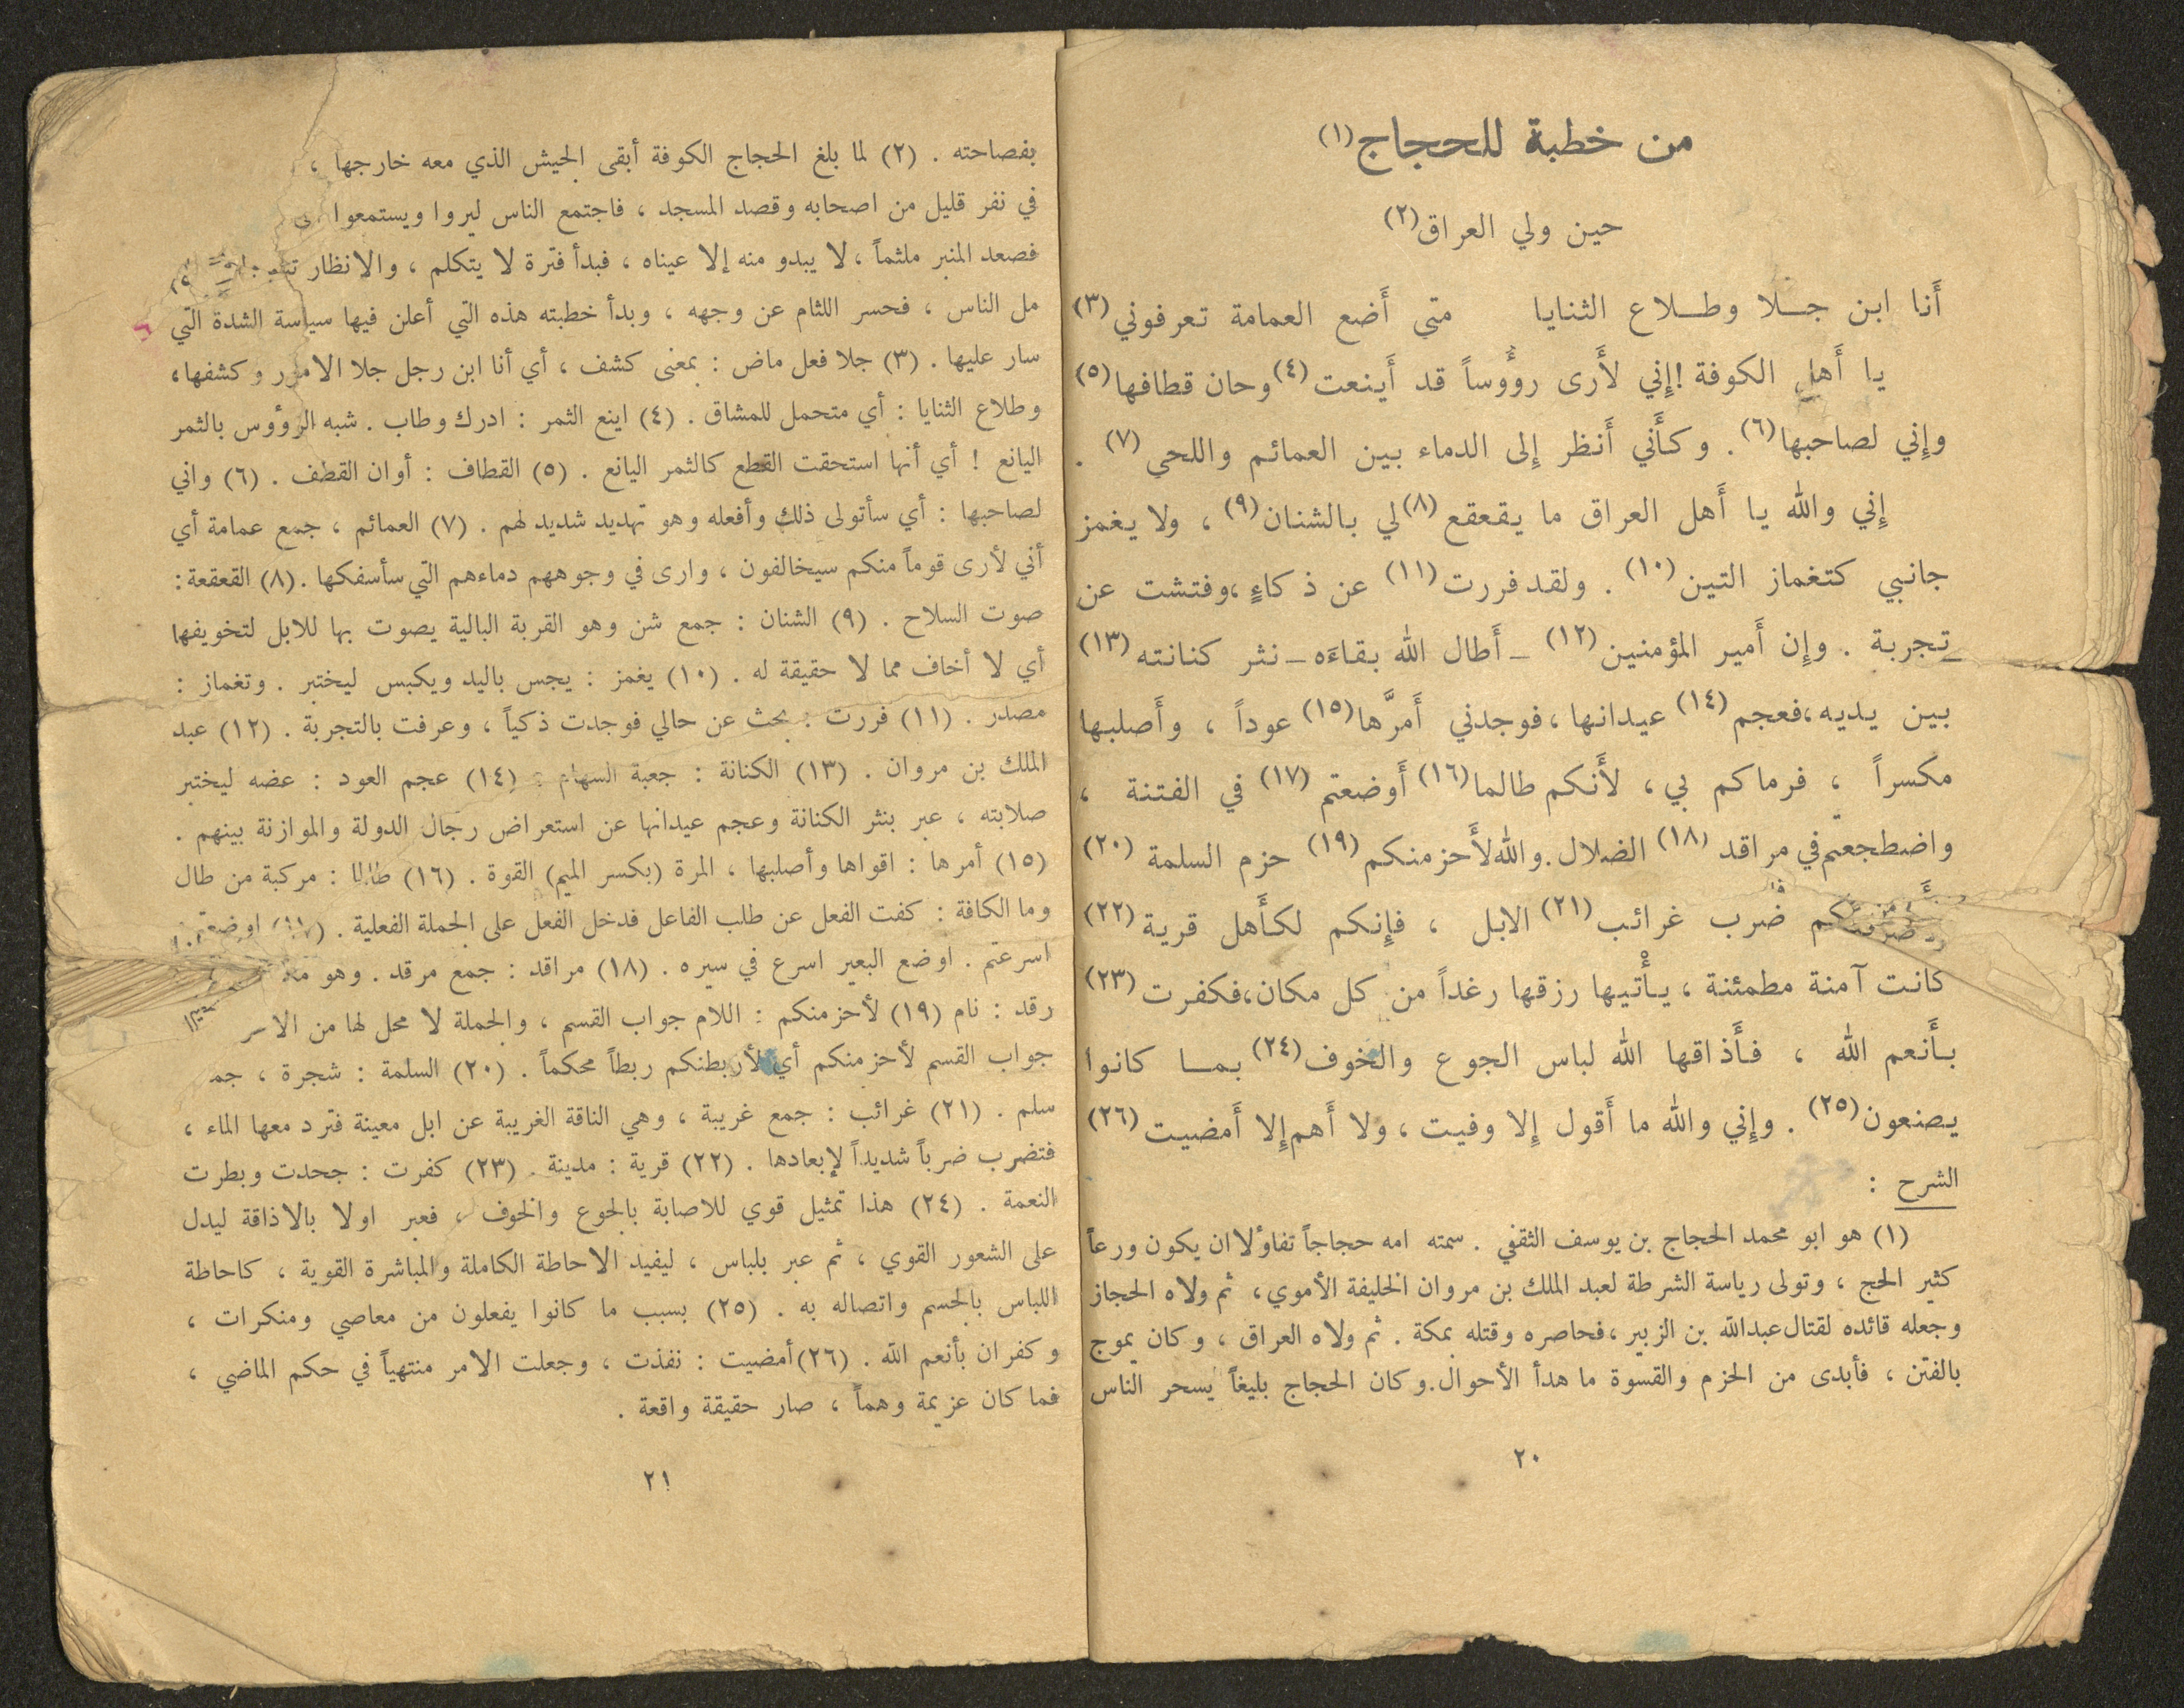 من خطبة للحجاج (١)
حين ولي العراق (٢)
أَنا ابن جـلا وطـلاع الثنايا متى أَضع العمامة تعرفوني (٣)
يا أَهل الكوفة ! إِني لأَرى رؤُوساً قد أَينعت (٤) وحان قطافها (٥)
وإِني لصاحبها (٦) . وكأَني أَنظر إِلى الدماء بين العمائم واللحى (٧) .
إِني والله يا أَهل العراق ما يقعقع (٨) لي بالشنان (٩) ، ولا يغمز
جانبي كتغماز التين (١٠) . ولقد فررت (١١) عن ذكاءٍ ، وفتشت عن
تجربة . وإِن أَمير المؤمنين (١٢) – أَطال الله بقاءَه – نثر كنانته (١٣)
بين يديه ، فعجم (١٤) عيدانها ، فوجدني أَمرَّها (١٥) عوداً ، وأَصلبها
مكسراً ، فرماكم بي ، لأَنكم طالما (١٦) أَوضعتم (١٧) في الفتنة ،
واضطجعتم في مراقد (١٨) الضلال . والله لأَحزمنكم (١٩) حزم السلمة (٢٠)
ضرب غرائب (٢١) الابل ، فإِنكم لكأَهل قرية (٢٢)
كانت آمنة مطمئنة ، يأْتيها رزقها رغداً من كل مكان ، فكفرت (٢٣)
بأَنعم الله ، فأَذاقها الله لباس الجوع والخوف (٢٤) بمـا كانوا
يصنعون (٢٥) . وإِني والله ما أَقول إِلا وفيت ، ولا أَهم إِلا أَمضيت (٢٦)
الشرح :
(١) هو ابو محمد الحجاج بن يوسف الثقفي . سمته امه حجاجاً تفاؤلا ان يكون ورعاً
كثير الحج ، وتولى رياسة الشرطة لعبد الملك بن مروان الخليفة الأموي ، ثم ولاه الحجاز
وجعله قائده لقتال عبدالله بن الزبير ، فحاصره وقتله بمكة . ثم ولاه العراق ، وكان يموج
بالفتن ، فأبدى من الحزم والقسوة ما هدأ الأحوال . وكان الحجاج بليغاً يسحر الناس
٢٠
بفصاحته . (٢) لما بلغ الحجاج الكوفة أبقى الجيش الذي معه خارجها ،
في نفر قليل من اصحابه وقصد المسجد ، فاجتمع الناس ليروا ويستمعوا
فصعد المنبر ملثماً ، لا يبدو منه إلا عيناه ، فبدأ فترة لا يتكلم ، والانظار
مل الناس ، فحسر اللثام عن وجهه ، وبدأ خطبته هذه التي أعلن فيها سياسة الشدة التي
سار عليها . (٣) جلا فعل ماض : بمعنى كشف ، أي أنا ابن رجل جلا الامور وكشفها ،
وطلاع الثنايا : أي متحمل للمشاق . (٤) اينع الثمر : ادرك وطاب . شبه الرؤوس بالثمر
اليانع ! أي أنها استحقت القطع كالثمر اليانع . (٥) القطاف : أوان القطف . (٦) واني
لصاحبها : أي سأتولى ذلك وأفعله وهو تهديد شديد لهم . (٧) العمائم ، جمع عمامة أي
أني لأرى قوماً منكم سيخالفون ، وارى في وجوههم دماءهم التي سأسفكها . (٨) القعقعة :
صوت السلاح . (٩) الشنان : جمع شن وهو القربة البالية يصوت بها للابل لتخويفها
أي لا أخاف مما لا حقيقة له . (١٠) يغمز : يجس باليد ويكبس ليختبر . وتغماز :
مصدر . (١١) فررت : بحث عن حالي فوجدت ذكياً ، وعرفت بالتجربة . (١٢) عبد
الملك بن مروان . (١٣) الكنانة : جعبة السهام : (١٤) عجم العود : عضه ليختبر
صلابته ، عبر بنثر الكنانة وعجم عيدانها عن استعراض رجال الدولة والموازنة بينهم .
(١٥) أمرها : اقواها وأصلبها ، المرة (بكسر الميم) القوة . (١٦) طالما : مركبة من طال
وما الكافة : كفت الفعل عن طلب الفاعل فدخل الفعل على الجملة الفعلية .
اسرعتم . اوضع البعير اسرع في سيره . (١٨) مراقد : جمع مرقد . وهو
رقد : نام (١٩) لأحزمنكم : اللام جواب القسم ، والجملة لا محل لها من
جواب القسم لأحزمنكم أي لأربطنكم ربطاً محكماً . (٢٠) السلمة : شجرة ،
سلم . (٢١) غرائب : جمع غريبة ، وهي الناقة الغريبة عن ابل معينة فترد معها الماء ،
فتضرب ضرباً شديداً لإبعادها . (٢٢) قرية : مدينة . (٢٣) كفرت : جحدت وبطرت
النعمة . (٢٤) هذا تمثيل قوي للاصابة بالجوع والخوف ، فعبر اولا بالاذاقة ليدل
على الشعور القوي ، ثم عبر بلباس ، ليفيد الاحاطة الكاملة والمباشرة القوية ، كاحاطة
اللباس بالجسم واتصاله به . (٢٥) بسبب ما كانوا يفعلون من معاصي ومنكرات ،
وكفران بأنعم الله . (٢٦) أمضيت : نفذت ، وجعلت الامر منتهياً في حكم الماضي ،
فما كان عزيمة وهماً ، صار حقيقة واقعة .
٢١